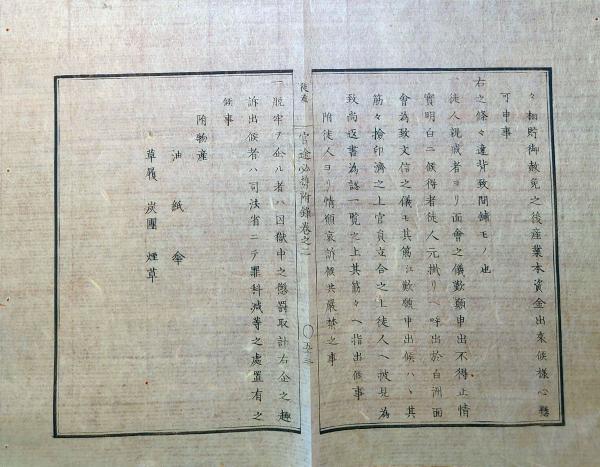 々相貯御赦免之後産業本資金出来候様心懸
可申事
右之條々違背致間鋪モノ也
一徒人親戚者ヨリ面會之儀歎願申出不得止情
實明白ニ候得者徒人元拭リヘ呼出於白洲面
會為致文信之儀モ其筋江歎願申出候ハヽ其
筋々撿印濟之上官員立合之上徒人ヘ披見為
致尚返書為認一覧之上其筋々ヘ指出候事
附徒人ヨリ情願哀訴候共嚴禁之事
徒木
官途必携附録巻之二
〇五十二
一脱牢ヲ企ル者ハ囚獄中之懲罰取計右企之趣
訴出候者ハ司法省ニテ罪科減等之處置有之
候事
附物産
油 紙 傘
草履 炭團 煙草